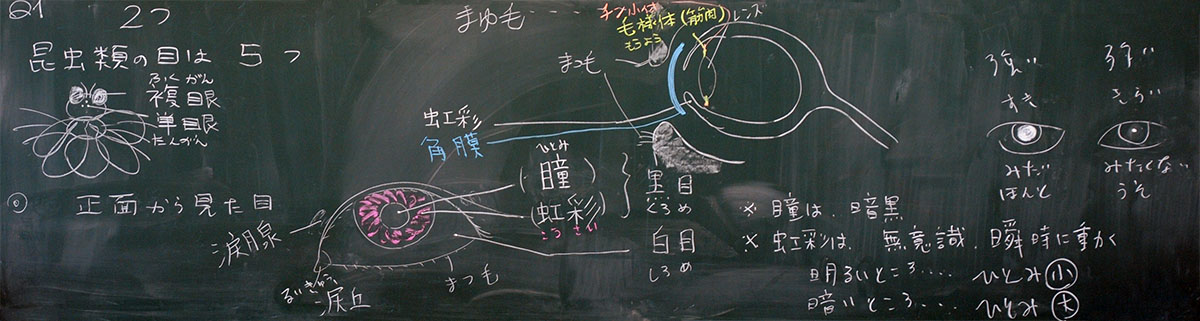 Q1
2つ
昆虫類の目は 5つ
ふくがん
複眼
単眼
たんがん
◎ 正面から見た目
涙腺
るいきゅう
涙丘
まつ毛
まゆ毛・・・・
チン小体
毛様体(筋肉)
もうよう
レンズ
まつ毛
虹彩
角膜
ひとみ
(瞳)
(虹彩)
こうさい
黒目
くろめ
白目
しろめ
強い
すき
みだ
ほんと
弱い
きらい
みたくない
うそ
※ 瞳は、暗黒
※ 虹彩は、無意識、瞬時に動く
明るいところ・・・・ ひとみ小
暗いところ・・・・ ひとみ大